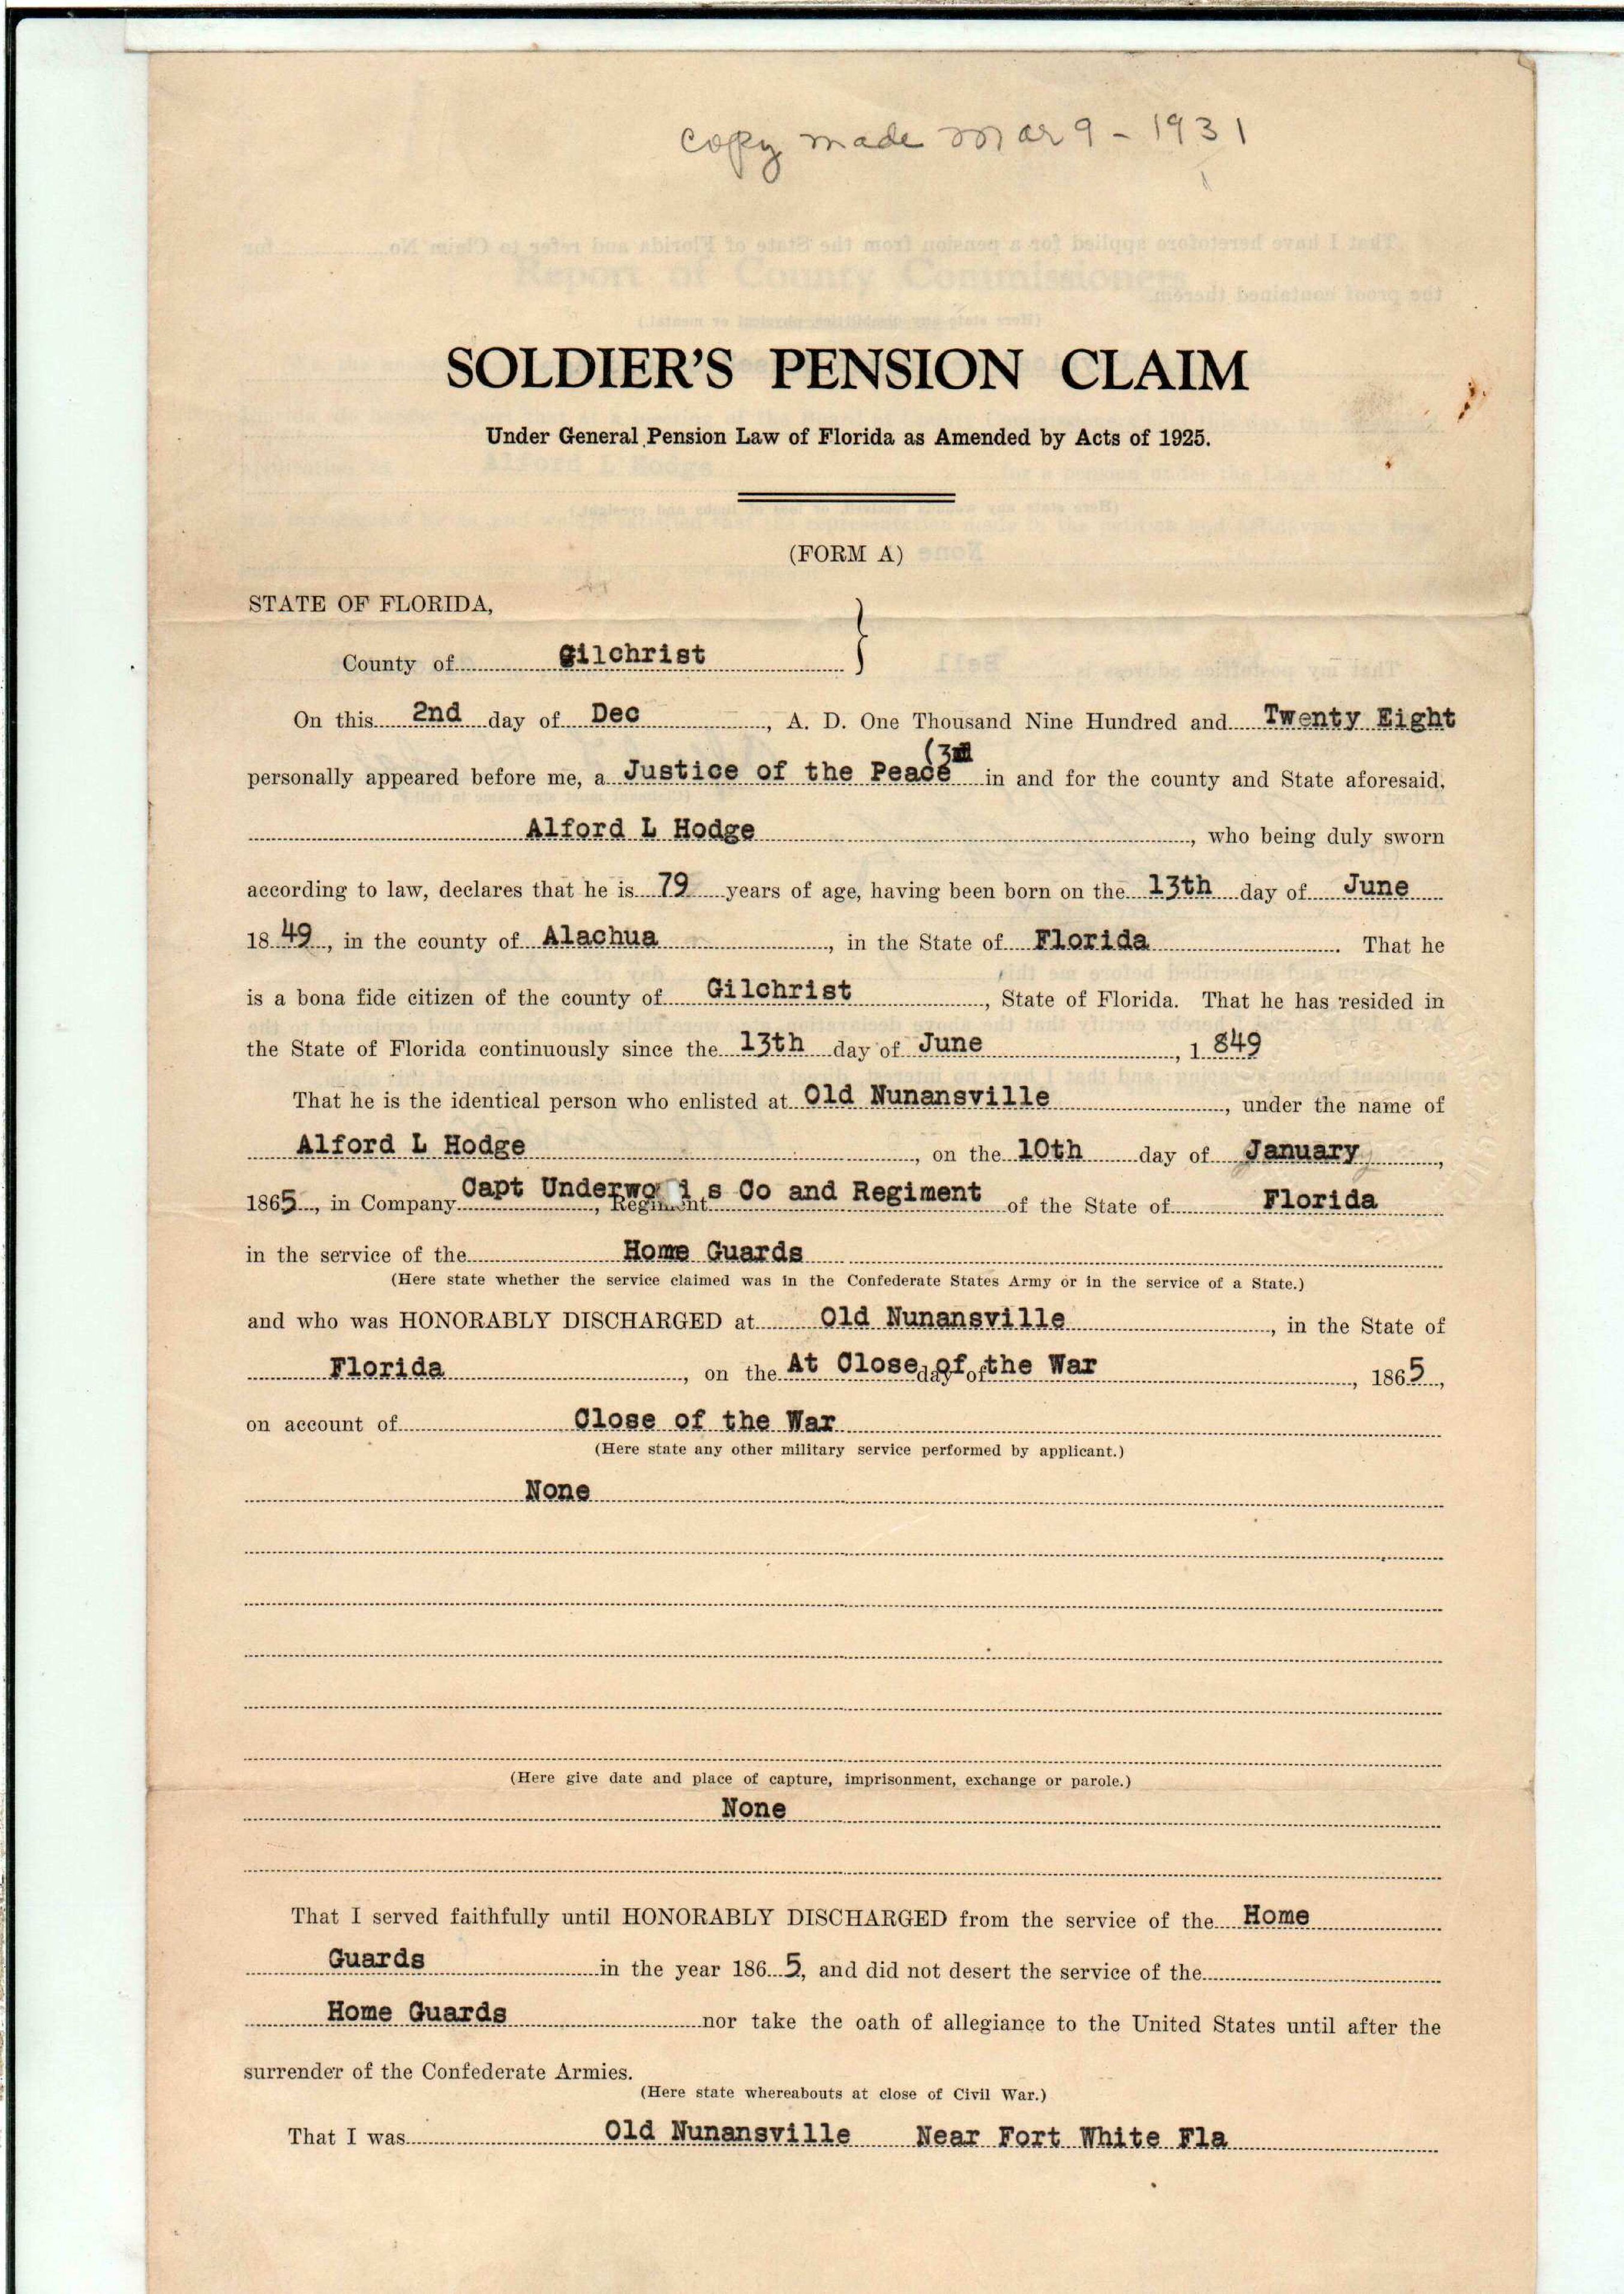 copy made Mar 9 - 1931
SOLDIER'S PENSION CLAIM
Under General Pension Law of Florida as Amended by Acts of 1925.
(FORM A)
STATE OF FLORIDA,
County of Gilchrist
On this 2nd day of Dec, A. D. One Thousand Nine Hundred and Twenty Eight
personally appeared before me, a Justice of the Peace in and for the county and State aforesaid,
Alford L Hodge, who being duly sworn
according to law, declares that he is 79 years of age, having been born on the 13th day of June
1849, in the county of Alachua, in the State of Florida. That he
is a bona fide citizen of the county of Gilchrist, State of Florida. That he has resided in
the State of Florida continuously since the 13th day of June, 1849
That he is the identical person who enlisted at Old Nunansville, under the name of
Alford L Hodge, on the 10th day of January,
1865, in Company Capt s Co and Regiment, Regiment of the State of Florida
in the service of the Home Guards
(Here state whether the service claimed was in the Confederate States Army or in the service of a State.)
and who was HONORABLY DISCHARGED at Old Nunansville, in the State of
Florida, on the At Close of the War day of, 1865,
on account of Close of the War
(Here state any other military service performed by applicant.)
None
(Here give date and place of capture, imprisonment, exchange or parole.)
None
That I served faithfully until HONORABLY DISCHARGED from the service of the Home
Guards in the year 1865, and did not desert the service of the
Home Guards nor take the oath of allegiance to the United States until after the
surrender of the Confederate Armies.
(Here state whereabouts at close of Civil War.)
That I was Old Nunansville Near Fort White Fla